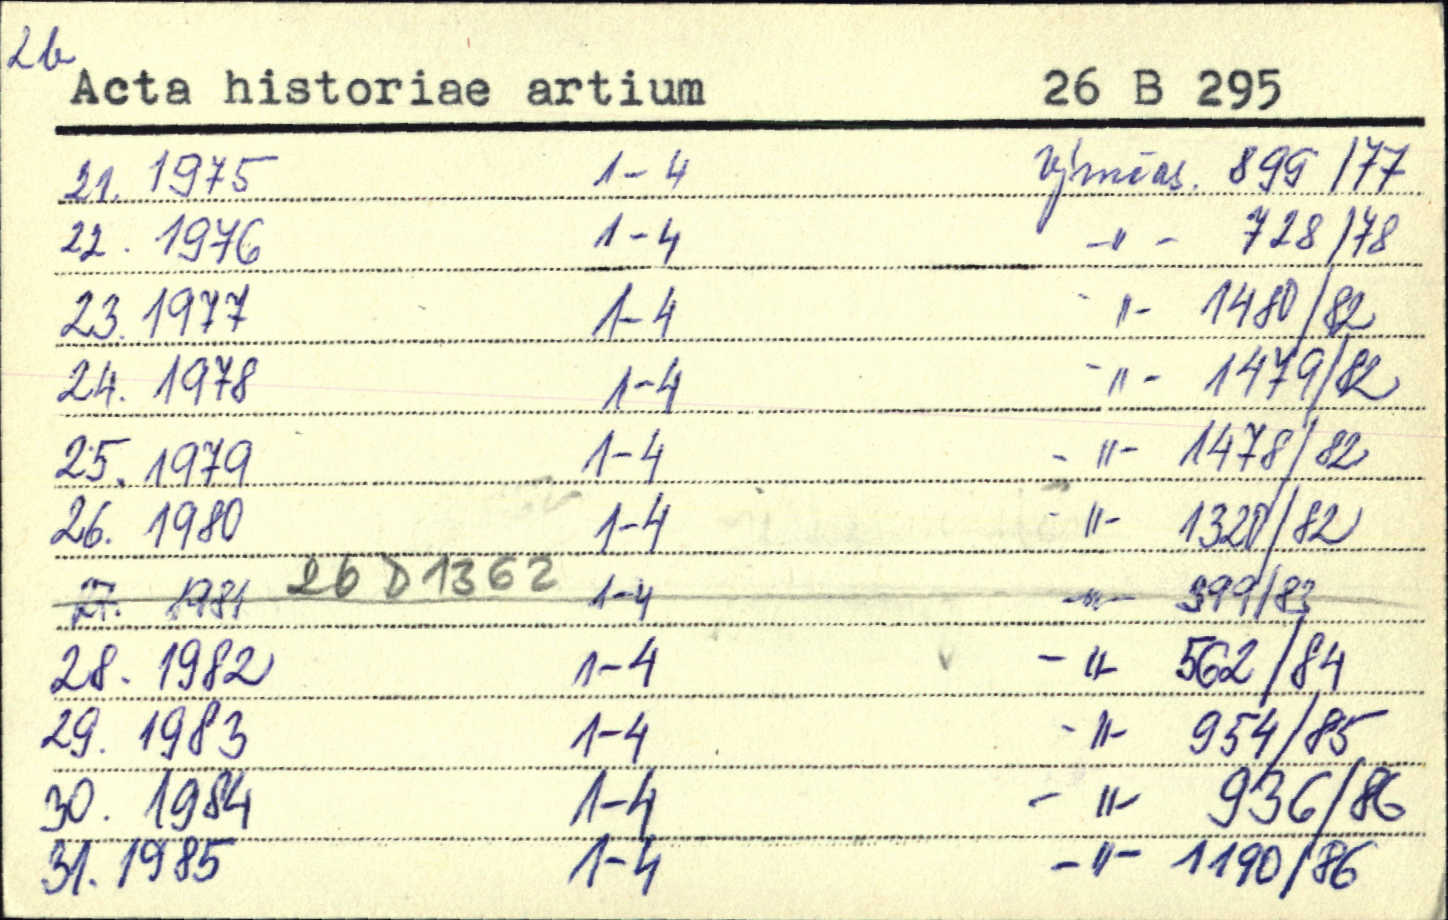 2b
Acta historiae artium 26 B 295
21. 1975 1-4 Výmčas. 899/77
22. 1976 1-4 -"- 728/78
23. 1977 1-4 -"- 1480/82
24. 1978 1-4 -"- 1479/82
25. 1979 1-4 -"- 1478/82
26. 1980 1-4 -"- 1320/82
27. 1981 26 D 1362 1-4 -"- 399/83
28. 1982 1-4 -"- 562/84
29. 1983 1-4 -"- 954/85
30. 1984 1-4 -"- 936/86
31. 1985 1-4 -"- 1190/86